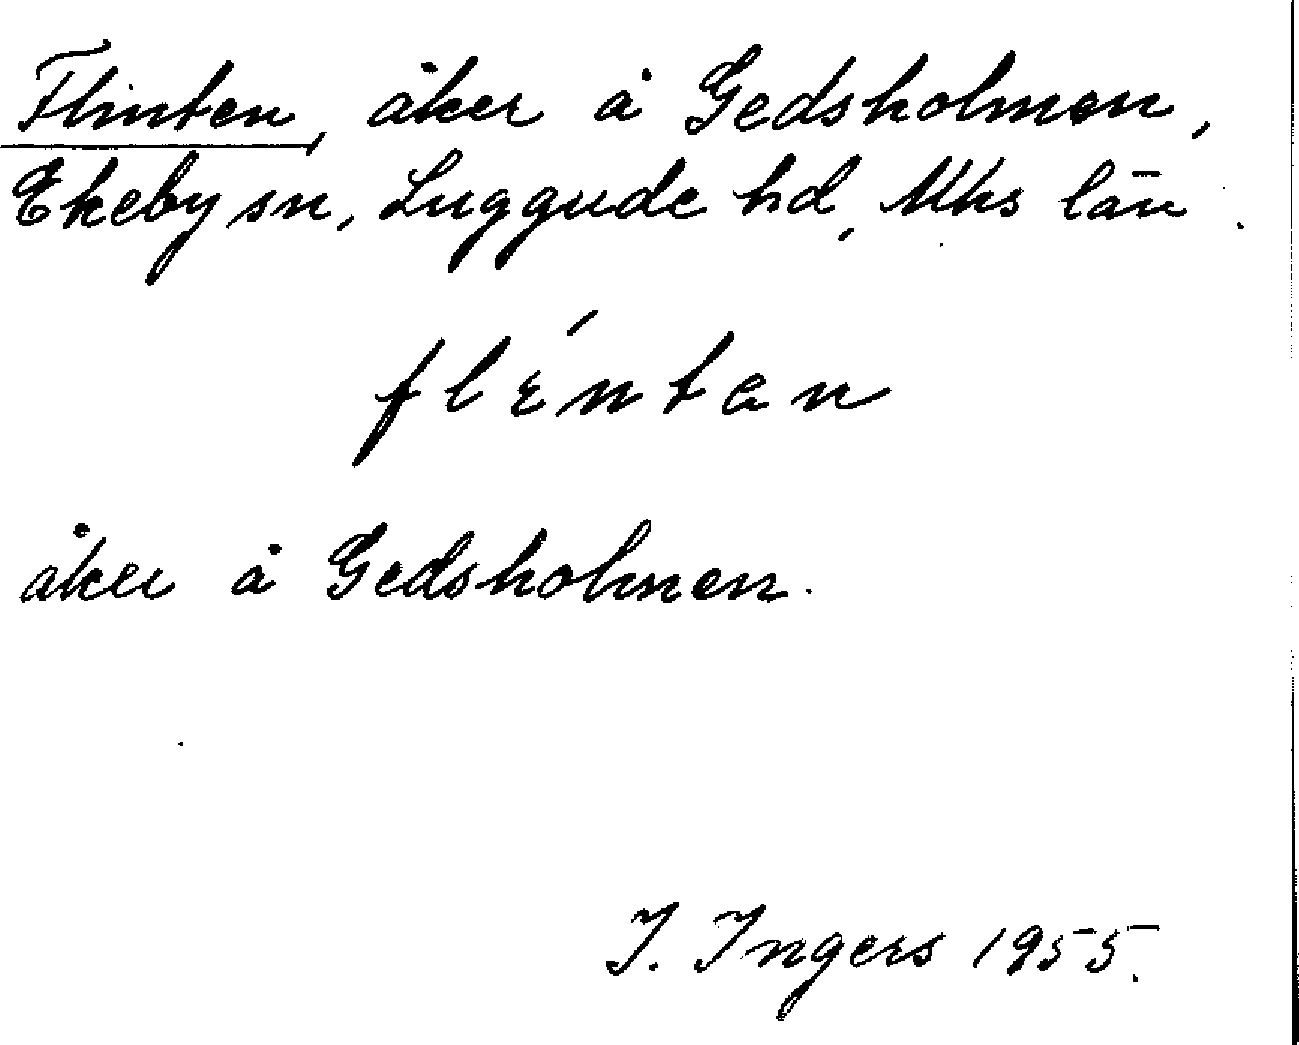 Flinten, åker å Gedsholmen,
Ekeby sn, Luggude hd, Mhs län.
flɛ́ntan
åker å Gedsholmen.
I. Ingers 1955.